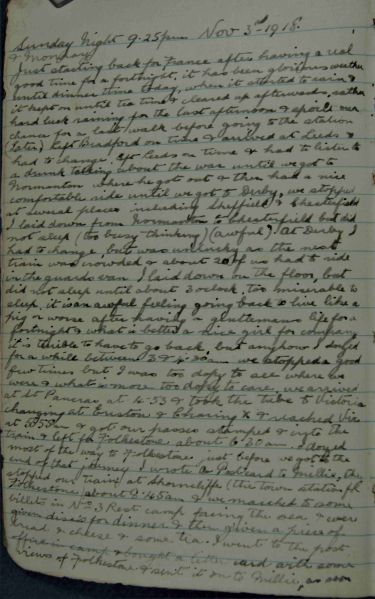 Sunday Night 9-25pm Nov 3rd 1918.
& Monday
Just starting back for France after having a real
good time for a fortnight, it has been glorious weather
until dinner time today, when it started to rain &
it kept on until tea time & cleared up afterwards, rather
hard luck raining for the last afternoon & spoils our
chance for a last walk before going to the station
(Later) Left Bradford on time & arrived at Leeds &
had to change. Left Leeds on time & had to listen to
a drunk talking about the war until we got to
Normanton where he got out & then had a nice
comfortable ride until we got to Derby, we stopped
at several places including Sheffield & Chesterfield
I laid down from Normanton to Chesterfield but did
not sleep (too busy thinking) (awful). At Derby I
had to change, but was unlucky as the next
train was crowded & about 20 of us had to ride
in the guards van. I laid down on the floor, but
did not sleep until about 3 oclock, too miserable to
sleep, it is an awful feeling going back to live like a
pig or worse after having a gentlemans life for a
fortnight & what is better a nice girl for company
it is terible to have to go back, but anyhow I dozed
for a while between 3 & 4.30am we stopped a good
few times but I was too dopy to see where we
were & whats more too dopy to care, we arrived
at St Pancras at 4-53 & took the tube to Victoria
changing at Euston & Charing X & reached Vic
at 5-50am & got our passes stamped & into the
train & left for Folkestone about 6-30am I dozed
most of the way to Folkestone just before we got to the
end of that journey I wrote a Postcard to Millie, the
stopped our train at Shorncliffe (the town station for
Folkestone about 9-45am & we marched to some
billets in No 3 Rest camp facing the sea & were
given discs for dinner & then given a piece of
bread & cheese & some tea. I went to the post
office in camp & bought a letter card with some
views of Folkestone & sent it on to Millie, as soon